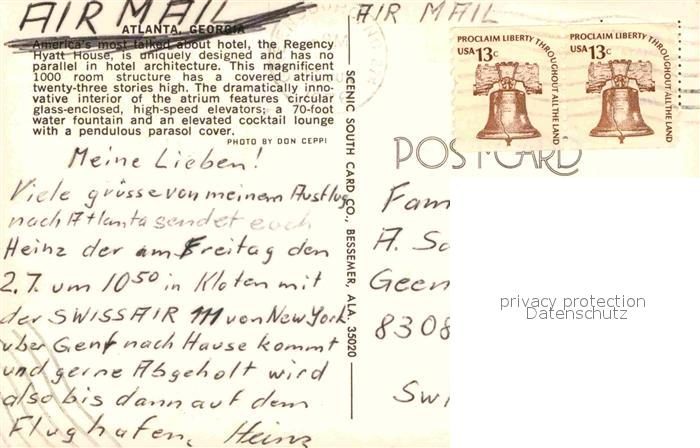 AIR MAIL
ATLANTA, GEORGIA
America's most talked about hotel, the Regency
Hyatt House, is uniquely designed and has no
parallel in hotel architecture. This magnificent
1000 room structure has a covered atrium
twenty-three stories high. The dramatically inno-
vative interior of the atrium features circular
glass-enclosed, high-speed elevators; a 70-foot
water fountain and an elevated cocktail lounge
with a pendulous parasol cover.
PHOTO BY DON CEPPI
Meine Lieben!
Viele grüsse von meinem Ausflug
nach Atlanta sendet euch
Heinz der am Freitag den
2.7. um 10 50 in Kloten mit
der SWISSAIR 111 von New York
über Genf nach Hause kommt
und gerne Abgeholt wird
also bis dann auf dem
Flughafen, Heinz
SCENIC SOUTH CARD CO., BESSEMER, ALA. 35020
AIR MAIL
PROCLAIM LIBERTY THROUGHOUT ALL THE LAND
USA 13c
PROCLAIM LIBERTY THROUGHOUT ALL THE LAND
USA 13c
POST CARD
Fam
A. Sc
Geen
8308
Swi
privacy protection
Datenschutz